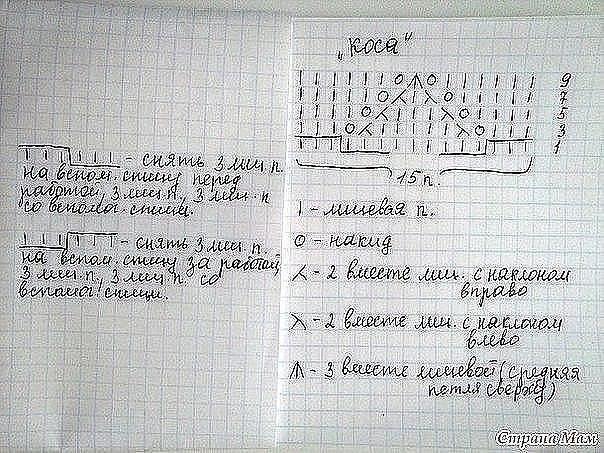 "коса"
| | | | | | О ⋀ О | | | | | | 9
| | | | | О ⋌ | ⋋ О | | | | | 7
| | | | О ⋌ | | | ⋋ О | | | | 5
| | | О ⋌ | | | | | ⋋ О | | | 3
1
15 п.
| | | | | | - снять 3 лиц п.
на вспом. спицу перед
работой, 3 лиц п., 3 лиц. п
со вспомог. спицы.
| | | | | | - снять 3 лиц п
на вспом. спицу за работой,
3 лиц п., 3 лиц п. со
вспомог. спицы.
| - лицевая п.
О - накид
⋌ - 2 вместе лиц. с наклоном
вправо
⋋ - 2 вместе лиц. с наклоном
влево
⋀ - 3 вместе лицевой (средняя
петля сверху)
Страна Мам